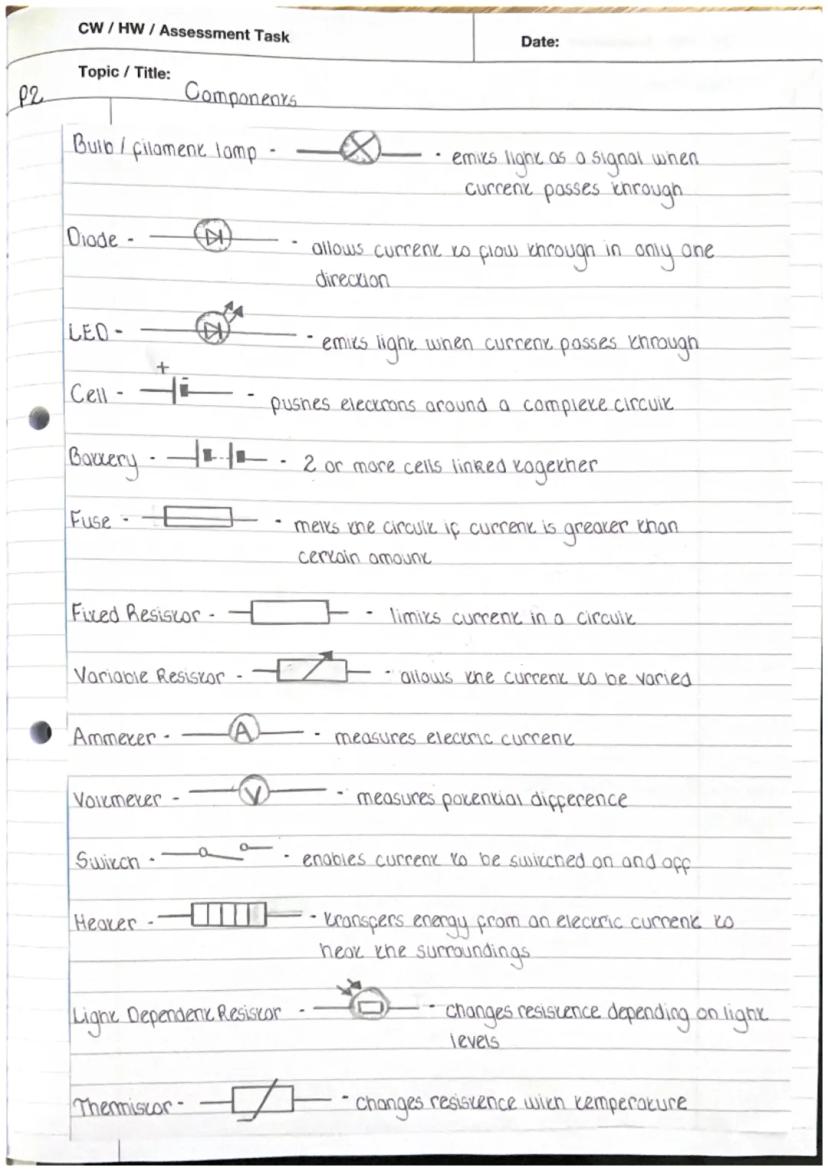 CW / HW / Assessment Task
Date:
Topic / Title:
P2
Components
Bulb / filament lamp - - emits light as a signal when
current passes through
Diode - - allows current to flow through in only one
direction
LED - - emits light when current passes through
+
Cell - - pushes electrons around a complete circuit
Battery - - 2 or more cells linked together
Fuse - - melts the circuit if current is greater than
certain amount
Fixed Resistor - - limits current in a circuit
Variable Resistor - - allows the current to be varied
Ammeter - A - measures electric current
Voltmeter - V - measures potential difference
Switch - - enables current to be switched on and off
Heater - - transfers energy from an electric current to
heat the surroundings
Light Dependent Resistor - - changes resistence depending on light
levels
Thermistor - - changes resistence with temperature